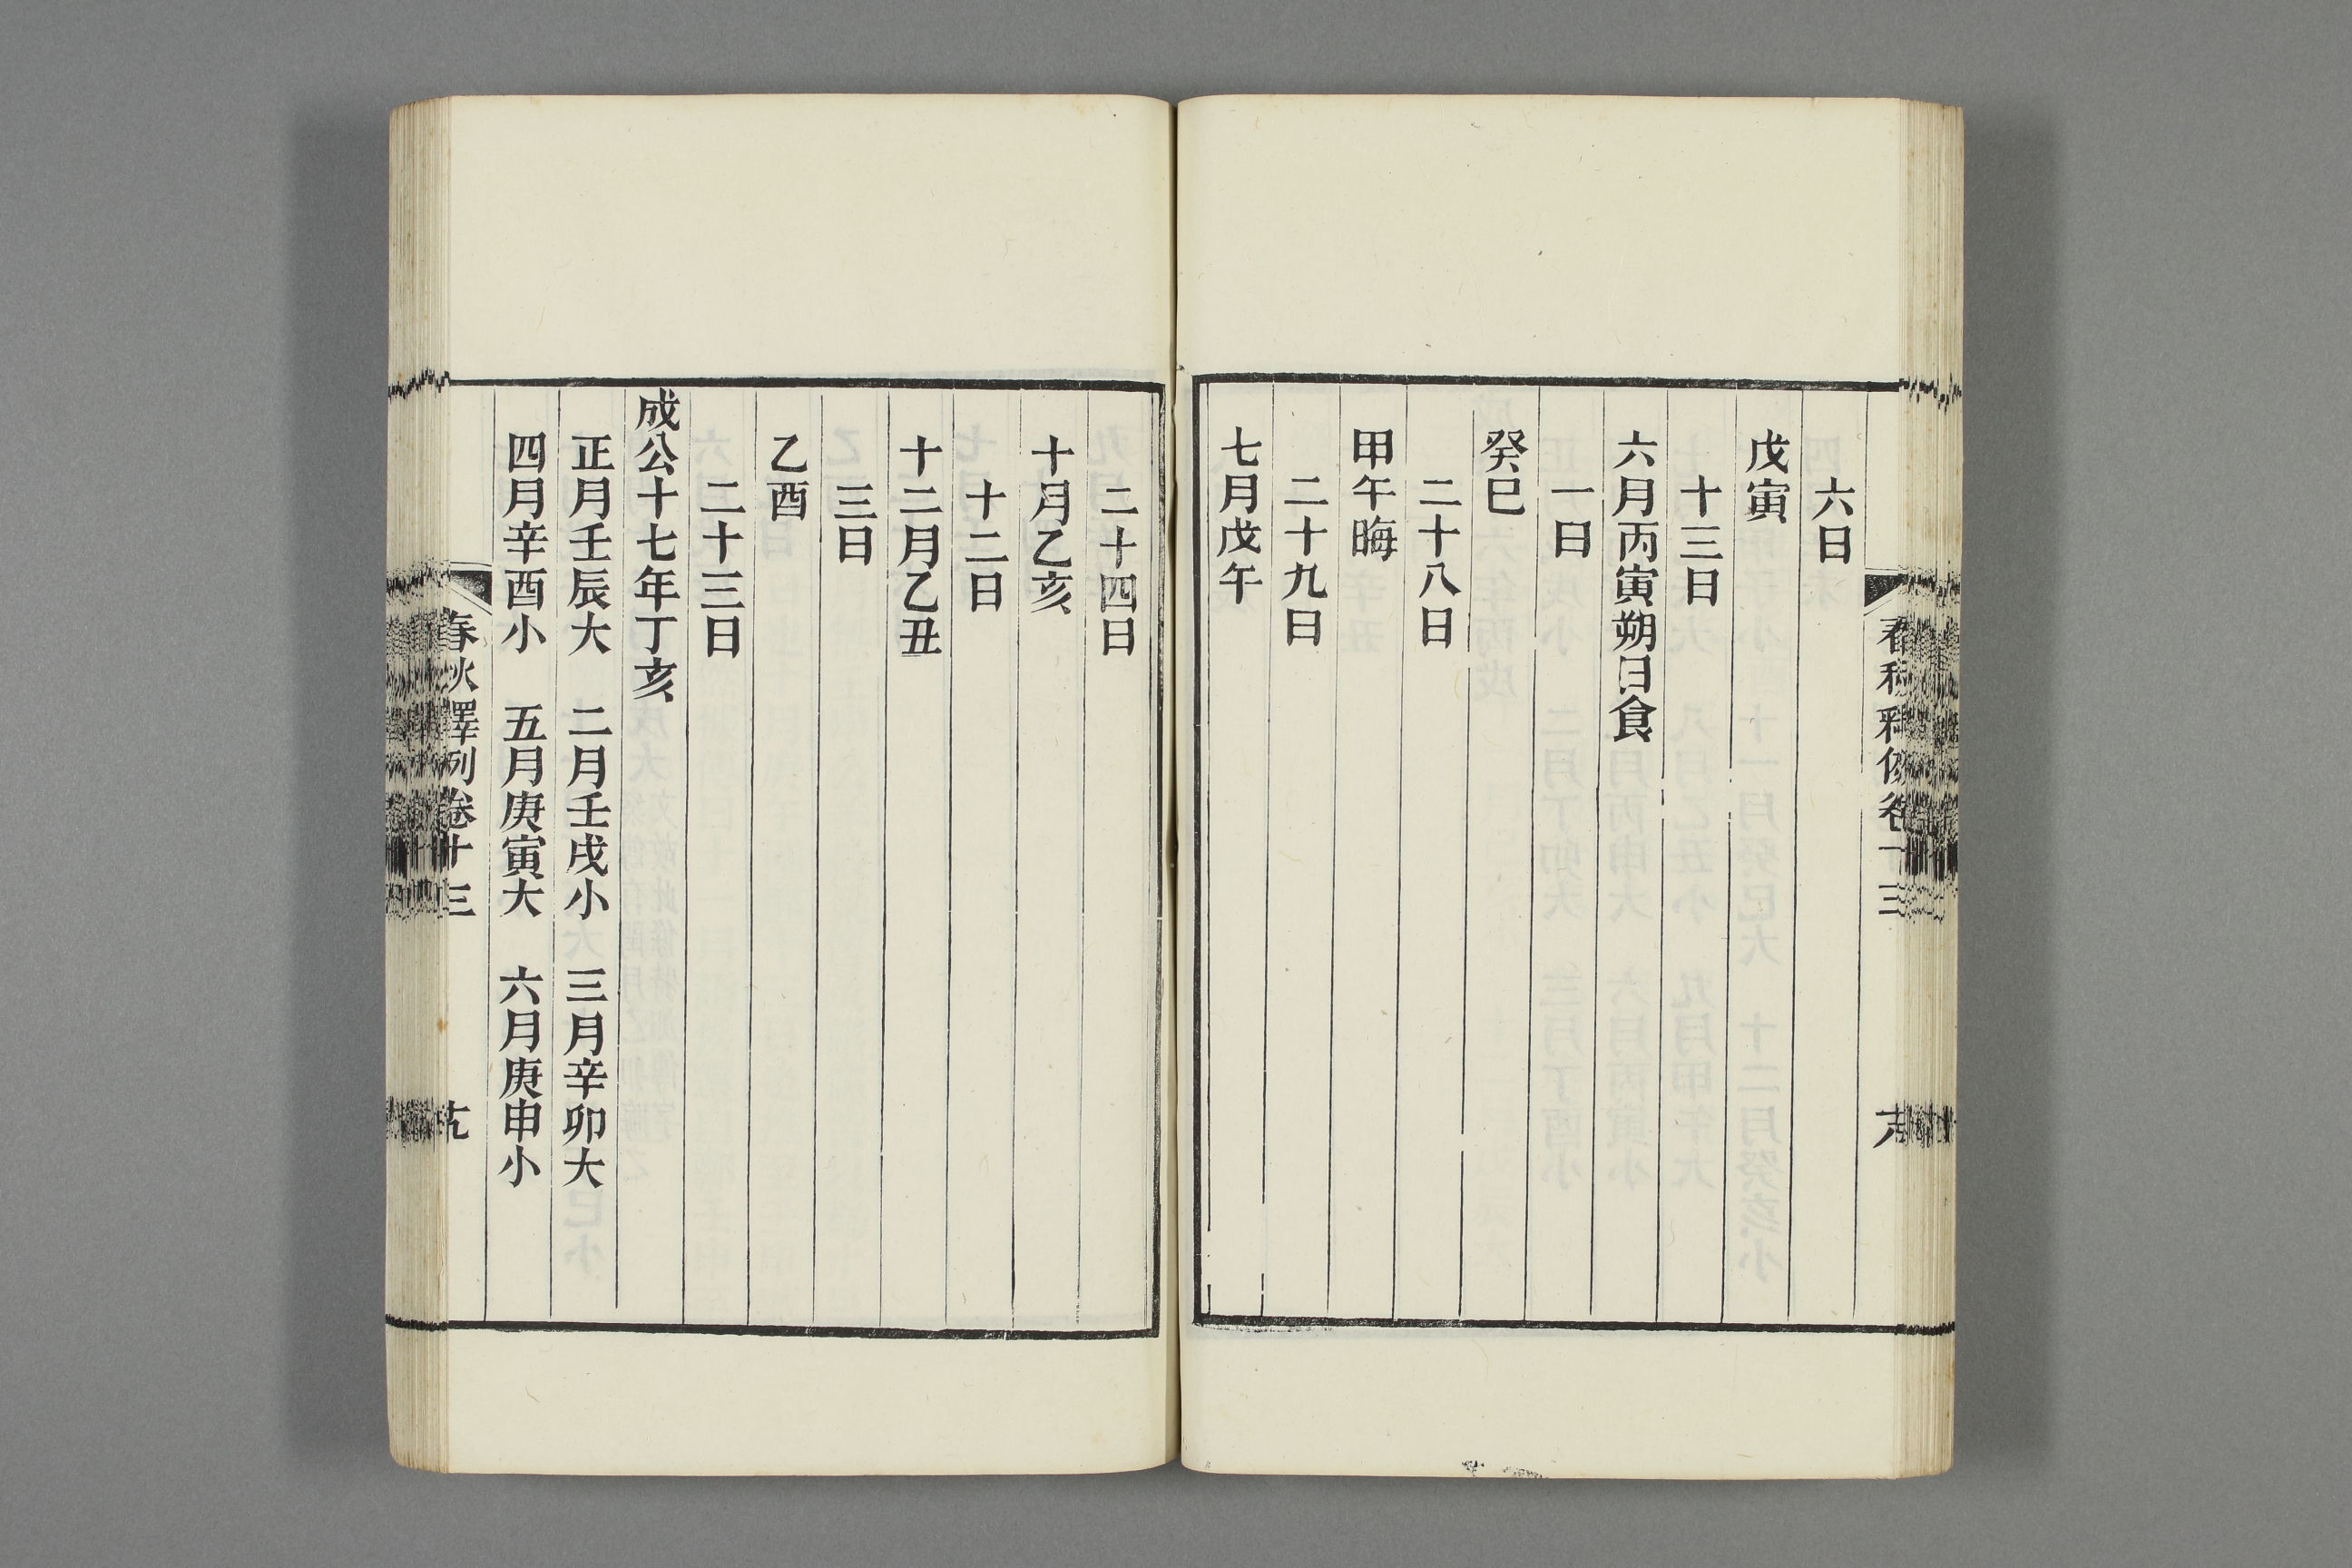 六日
戊寅
十三日
六月丙寅朔日食
一日
癸巳
二十八日
甲午晦
二十九日
七月戊午
二十四日
十月乙亥
十二日
十二月乙丑
三日
乙酉
二十三日
成公十七年丁亥
正月壬辰大　二月壬戌小　三月辛卯大
四月辛酉小　五月庚寅大　六月庚申小
春秋釋例卷十三